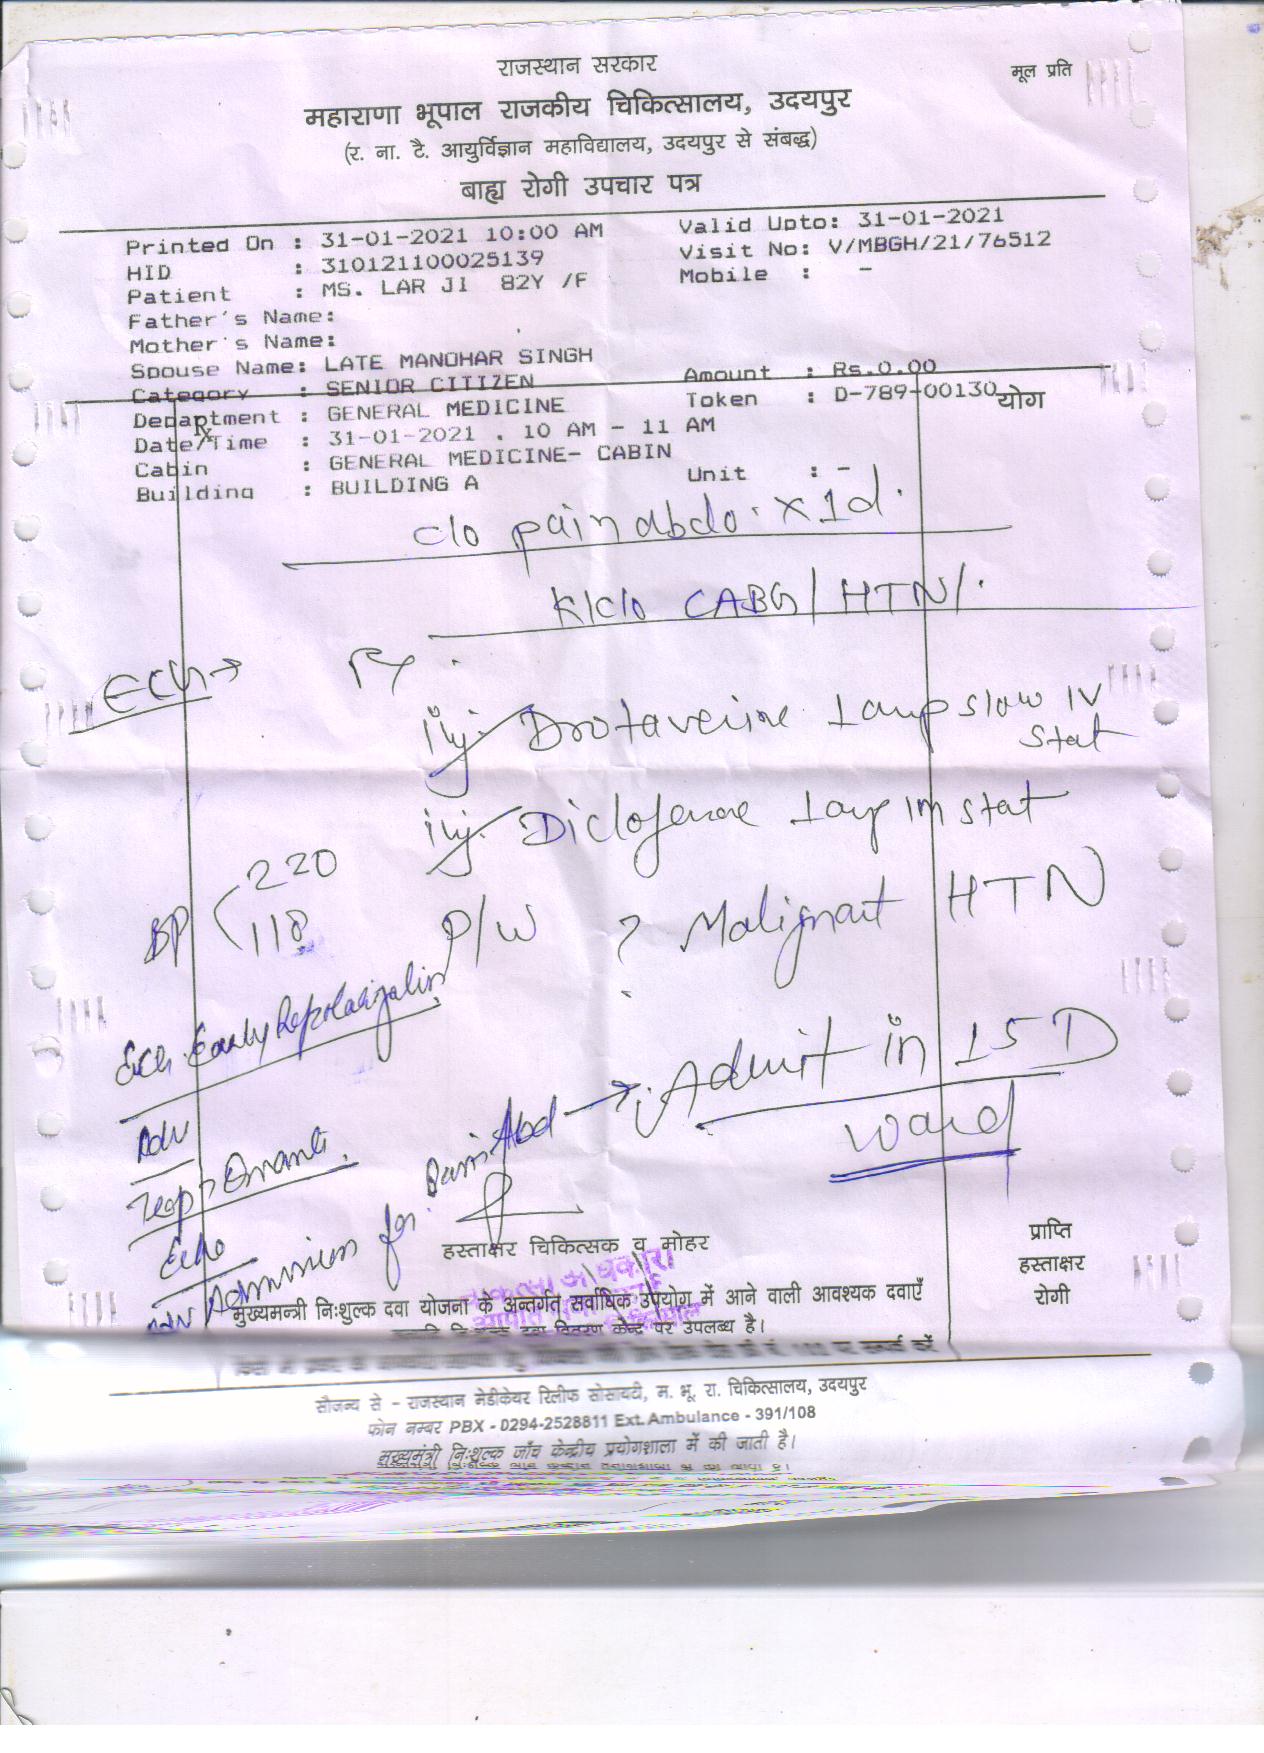 राजस्थान सरकार
मूल प्रति
महाराणा भूपाल राजकीय चिकित्सालय, उदयपुर
(र. ना. टै. आयुर्विज्ञान महाविद्यालय, उदयपुर से संबद्ध)
बाह्य रोगी उपचार पत्र
Printed On : 31-01-2021 10:00 AM Valid Upto: 31-01-2021
HID : 310121100025139 Visit No: V/MBGH/21/76512
Patient : MS. LAR JI 82Y /F Mobile : -
Father's Name:
Mother's Name:
Spouse Name: LATE MANOHAR SINGH
Category : SENIOR CITIZEN Amount : Rs.0.00
Department : GENERAL MEDICINE Token : D-789-00130 योग
Date/Time : 31-01-2021 . 10 AM - 11 AM
Cabin : GENERAL MEDICINE- CABIN
Building : BUILDING A Unit : -
c/o pain abdo. x 1d.
K/C/o CABG / HTN /.
ECG → Rx
inj. Drotaverine 1 amp slow IV
stat
inj. Diclofenac 1 amp IM stat
BP 220
118
P/W ? Malignant HTN
ECG. Early Repolarization
Admit in 15 D
ward
Adv
Trop
Echo
Admission for Pain Abd →
हस्ताक्षर चिकित्सक व मोहर
प्राप्ति
हस्ताक्षर
रोगी
मुख्यमन्त्री निःशुल्क दवा योजना के अन्तर्गत सर्वाधिक उपयोग में आने वाली आवश्यक दवाएँ
दवा वितरण केन्द्र पर उपलब्ध है।
सौजन्य से - राजस्थान मेडीकेयर रिलीफ सोसायटी, म. भू. रा. चिकित्सालय, उदयपुर
फोन नम्बर PBX - 0294-2528811 Ext. Ambulance - 391/108
मुख्यमंत्री निःशुल्क जाँच केन्द्रीय प्रयोगशाला में की जाती है।